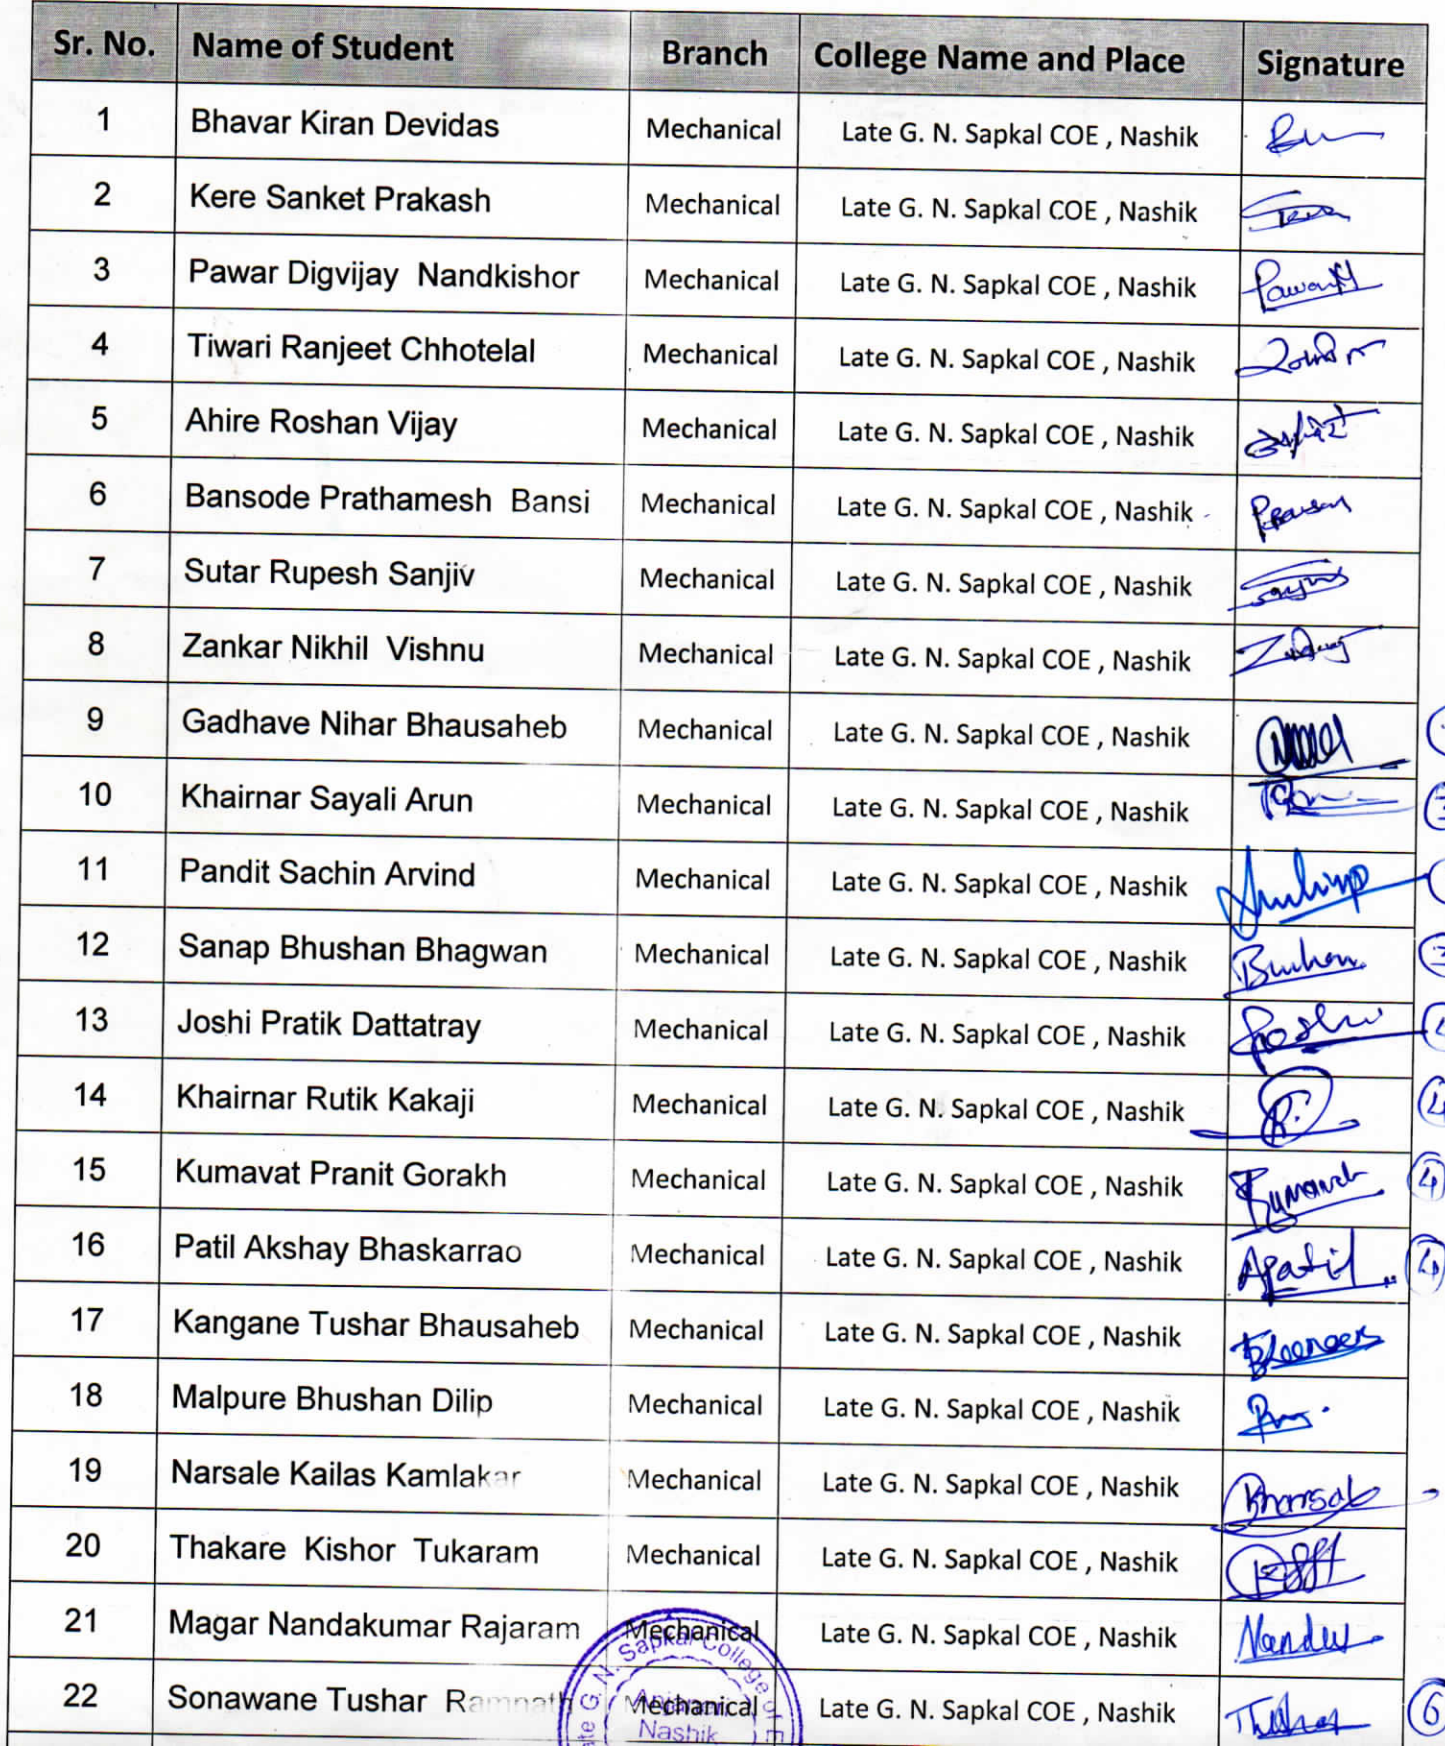 Sr. No. Name of Student Branch College Name and Place Signature
1 Bhavar Kiran Devidas Mechanical Late G. N. Sapkal COE , Nashik
2 Kere Sanket Prakash Mechanical Late G. N. Sapkal COE , Nashik
3 Pawar Digvijay Nandkishor Mechanical Late G. N. Sapkal COE , Nashik
4 Tiwari Ranjeet Chhotelal Mechanical Late G. N. Sapkal COE , Nashik
5 Ahire Roshan Vijay Mechanical Late G. N. Sapkal COE , Nashik
6 Bansode Prathamesh Bansi Mechanical Late G. N. Sapkal COE , Nashik
7 Sutar Rupesh Sanjiv Mechanical Late G. N. Sapkal COE , Nashik
8 Zankar Nikhil Vishnu Mechanical Late G. N. Sapkal COE , Nashik
9 Gadhave Nihar Bhausaheb Mechanical Late G. N. Sapkal COE , Nashik
10 Khairnar Sayali Arun Mechanical Late G. N. Sapkal COE , Nashik
11 Pandit Sachin Arvind Mechanical Late G. N. Sapkal COE , Nashik
12 Sanap Bhushan Bhagwan Mechanical Late G. N. Sapkal COE , Nashik
13 Joshi Pratik Dattatray Mechanical Late G. N. Sapkal COE , Nashik
14 Khairnar Rutik Kakaji Mechanical Late G. N. Sapkal COE , Nashik R. 4
15 Kumavat Pranit Gorakh Mechanical Late G. N. Sapkal COE , Nashik 4
16 Patil Akshay Bhaskarrao Mechanical Late G. N. Sapkal COE , Nashik Apatil 4
17 Kangane Tushar Bhausaheb Mechanical Late G. N. Sapkal COE , Nashik
18 Malpure Bhushan Dilip Mechanical Late G. N. Sapkal COE , Nashik
19 Narsale Kailas Kamlakar Mechanical Late G. N. Sapkal COE , Nashik
20 Thakare Kishor Tukaram Mechanical Late G. N. Sapkal COE , Nashik
21 Magar Nandakumar Rajaram Mechanical Late G. N. Sapkal COE , Nashik
22 Sonawane Tushar Ramnath Mechanical Late G. N. Sapkal COE , Nashik 6
G. N. Sapkal College of E
Anjaneri
Nashik